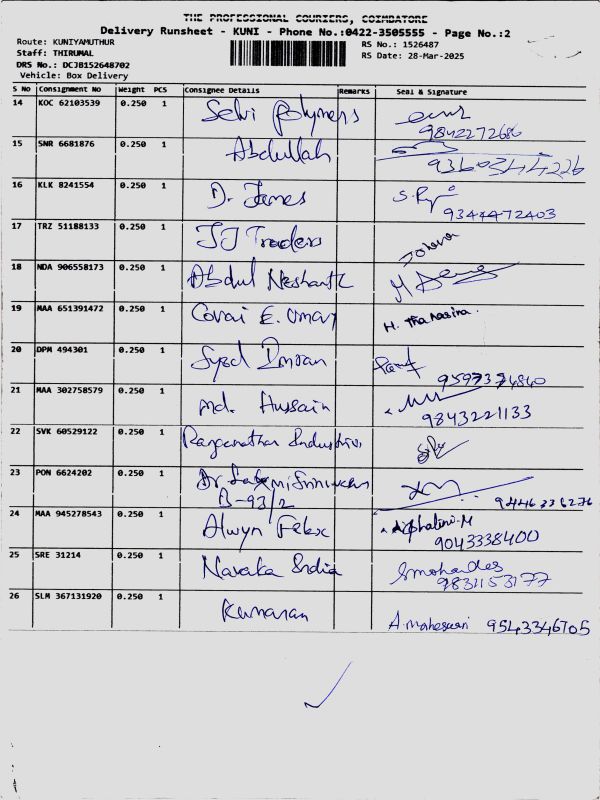 THE PROFESSIONAL COURIERS, COIMBATORE
Delivery Runsheet - KUNI - Phone No.:0422-3505555 - Page No.:2
Route: KUNIYAMUTHUR
Staff: THIRUMAL
DRS No.: DCJB152648702
Vehicle: Box Delivery
RS No.: 1526487
RS Date: 28-Mar-2025
S No Consignment No Weight PCS Consignee Details Remarks Seal & Signature
14 KOC 62103539 0.250 1 Selvi Polymers
9842272686
15 SNR 6681876 0.250 1 Abdullah
9360344226
16 KLK 8241554 0.250 1 D. James
9344472403
17 TRZ 51188133 0.250 1 JJ Traders
18 NDA 906558173 0.250 1 Abdul
19 MAA 651391472 0.250 1 Covai E. Omar H. Tha Nasira.
20 DPM 494301 0.250 1 Syed Imran
9597374840
21 MAA 302758579 0.250 1 Md. Hussain
9843221133
22 SVK 60529122 0.250 1
23 PON 6624202 0.250 1 Dr.
B-93/2 9446336276
24 MAA 945278543 0.250 1 Alwyn Felix
9043338400
25 SRE 31214 0.250 1 India
9831153177
26 SLM 367131920 0.250 1 Kumaran
A. Maheswari 9543346705